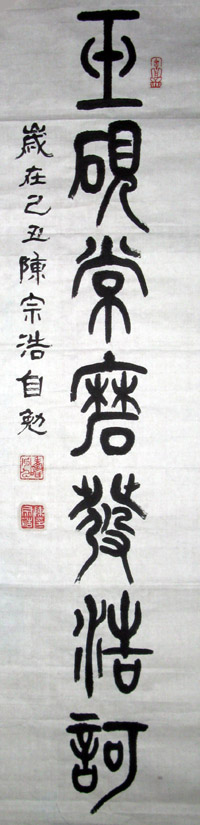 硯常磨發浩訶
歲在己丑陳宗浩自勉